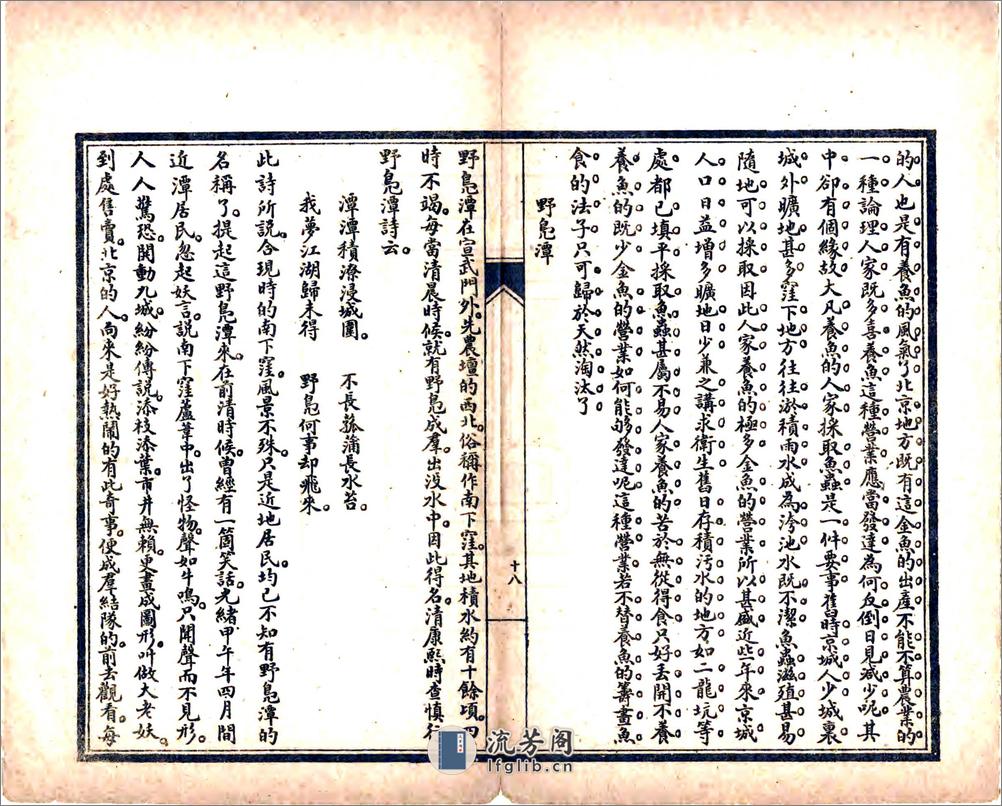 的人也是有養魚的風氣了北京地方既有這金魚的出產不能不算農業的
一種論理人家既多喜養魚這種營業應當發達為何反倒日見減少呢其
中卻有個緣故大凡養魚的人家採取魚蟲是一件要事舊時京城人少城裏
城外曠地甚多窪下地方往往淤積雨水成為洿池水既不潔魚蟲滋殖甚易
隨地可以採取因此人家養魚的極多金魚的營業所以甚盛近些年來京城
人口日益增多曠地日少兼之講求衛生舊日存積污水的地方如二龍坑等
處都已填平採取魚蟲甚屬不易人家養魚的苦於無從得食只好丟開不養
養魚的既少金魚的營業如何能夠發達呢這種營業若不替養魚的籌畫魚
食的法子只可歸於天然淘汰了
野鳧潭
十八
野鳧潭在宣武門外。先農壇的西北。俗稱作南下窪。其地積水約有十餘頃。四
時不竭。每當清晨時候。就有野鳧成羣。出沒水中。因此得名。清康熙時。查慎行
野鳧潭詩云。
潭潭積潦浸城闉。 不長菰蒲長水苔。
我夢江湖歸未得 野鳧何事却飛來。
此詩所說。合現時的南下窪。風景不殊。只是近地居民。均已不知有野鳧潭的
名稱了。提起這野鳧潭來。在前清時候。曾經有一箇笑話。光緒甲午年四月間
近潭居民。忽起妖言。說南下窪蘆葦中。出了怪物。聲如牛鳴。只聞聲而不見形。
人人驚恐。閧動九城。紛紛傳說。添枝添葉。市井無賴。更畫成圖形。叫做大老妖。
到處售賣。北京的人。向來是好熱鬧的。有此奇事。便成羣結隊的。前去觀看。每
流芳阁
lfglib.cn